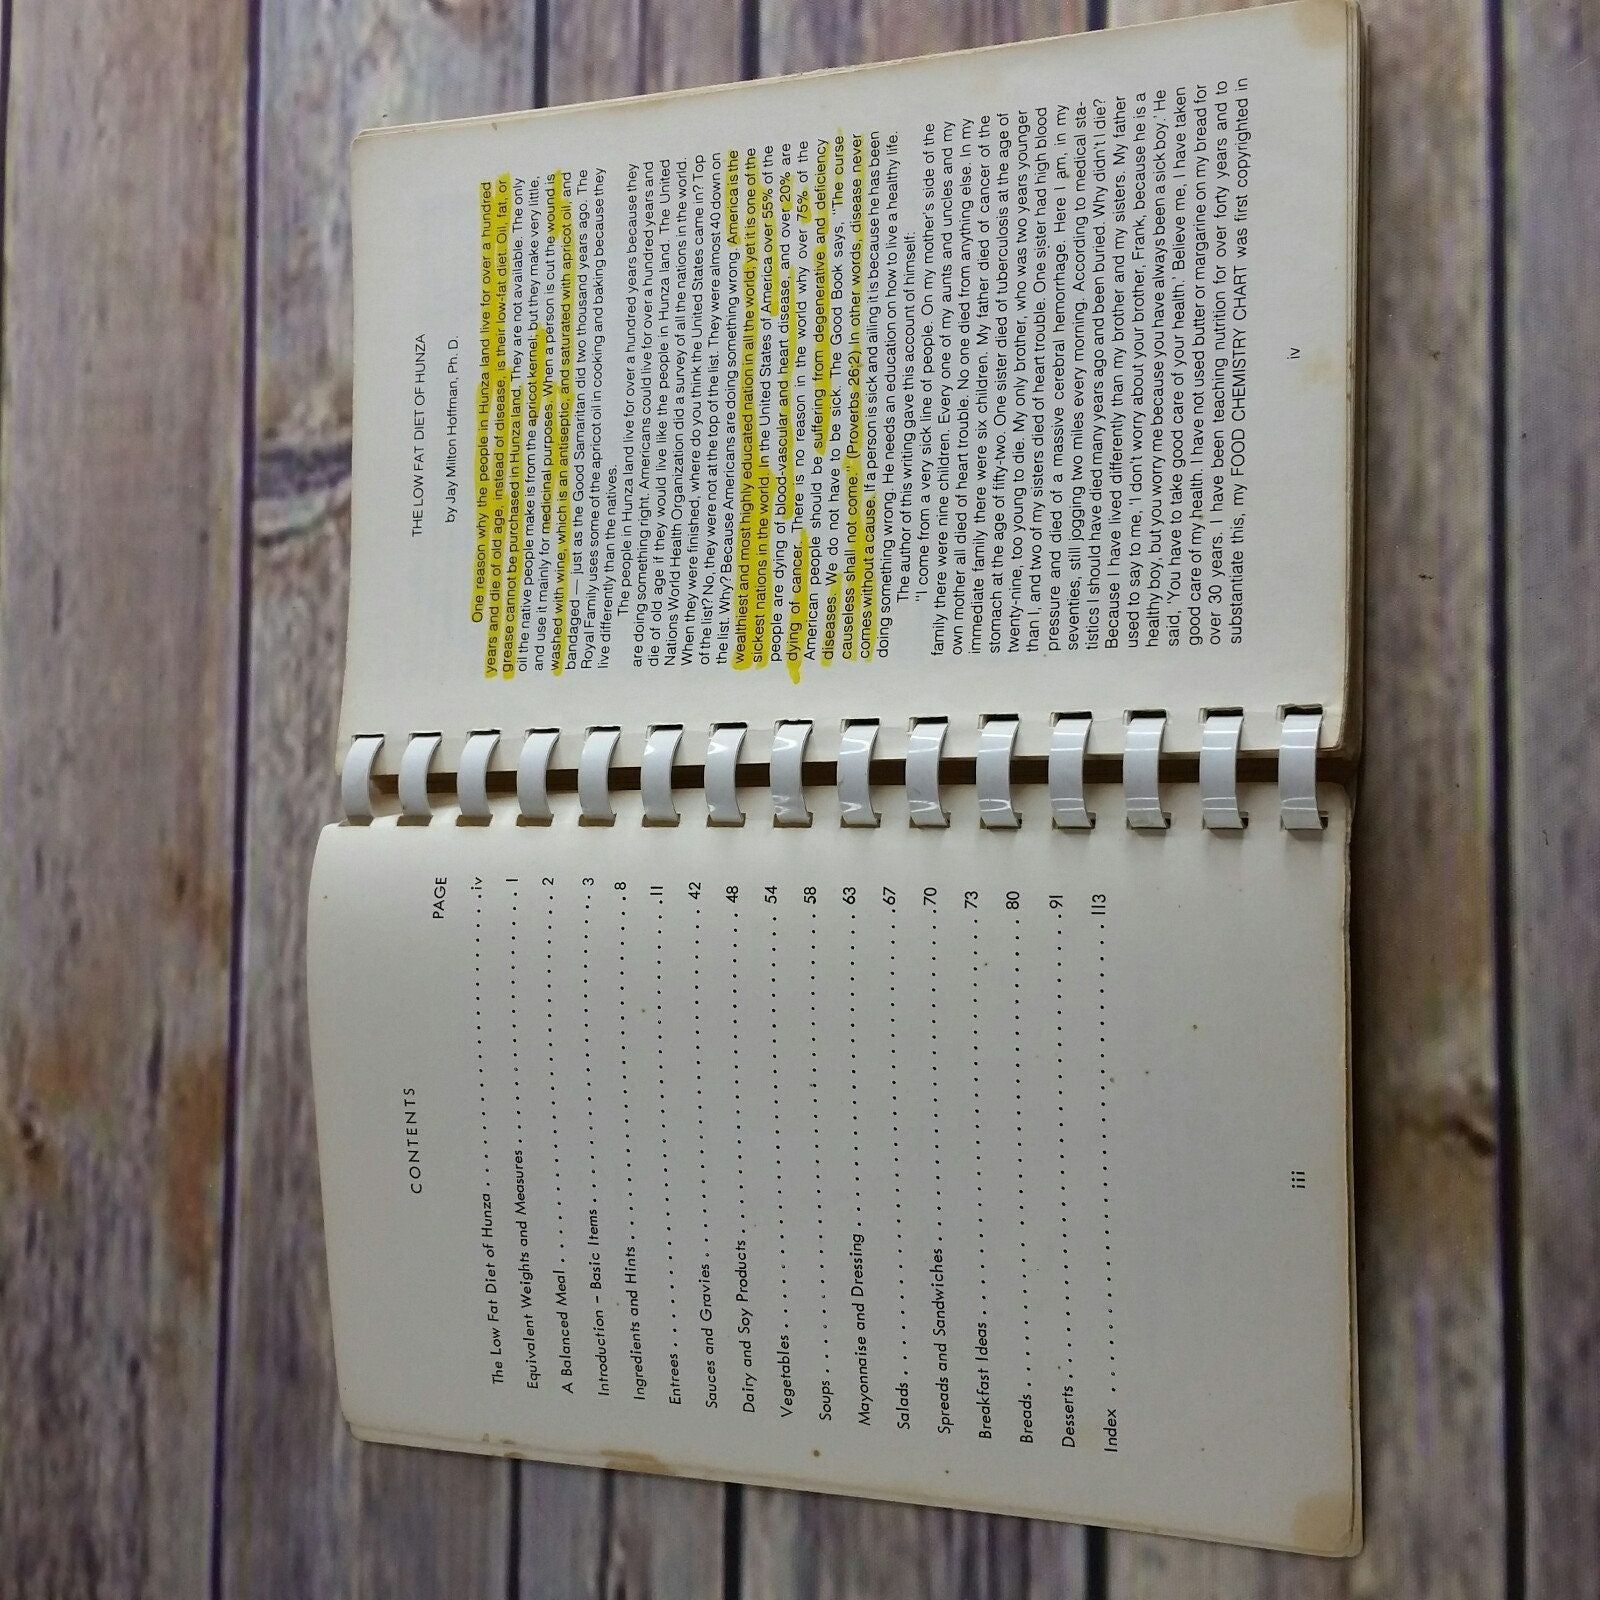 CONTENTS
PAGE
The Low Fat Diet of Hunza . . . . . . . . . . . . . . . . . . . . iv
Equivalent Weights and Measures . . . . . . . . . . . . . . . . . . . . 1
A Balanced Meal . . . . . . . . . . . . . . . . . . . . 2
Introduction - Basic Items . . . . . . . . . . . . . . . . . . . . 3
Ingredients and Hints . . . . . . . . . . . . . . . . . . . . 8
Entrees . . . . . . . . . . . . . . . . . . . . 11
Sauces and Gravies . . . . . . . . . . . . . . . . . . . . 42
Dairy and Soy Products . . . . . . . . . . . . . . . . . . . . 48
Vegetables . . . . . . . . . . . . . . . . . . . . 54
Soups . . . . . . . . . . . . . . . . . . . . 58
Mayonnaise and Dressing . . . . . . . . . . . . . . . . . . . . 63
Salads . . . . . . . . . . . . . . . . . . . . 67
Spreads and Sandwiches . . . . . . . . . . . . . . . . . . . . 70
Breakfast Ideas . . . . . . . . . . . . . . . . . . . . 73
Breads . . . . . . . . . . . . . . . . . . . . 80
Desserts . . . . . . . . . . . . . . . . . . . . 91
Index . . . . . . . . . . . . . . . . . . . . 113
iii
THE LOW FAT DIET OF HUNZA
by Jay Milton Hoffman, Ph. D.
One reason why the people in Hunza land live for over a hundred
years and die of old age, instead of disease, is their low-fat diet. Oil, fat, or
grease cannot be purchased in Hunza land. They are not available. The only
oil the native people make is from the apricot kernel; but they make very little,
and use it mainly for medicinal purposes. When a person is cut the wound is
washed with wine, which is an antiseptic, and saturated with apricot oil, and
bandaged — just as the Good Samaritan did two thousand years ago. The
Royal Family uses some of the apricot oil in cooking and baking because they
live differently than the natives.
The people in Hunza land live for over a hundred years because they
are doing something right. Americans could live for over a hundred years and
die of old age if they would live like the people in Hunza land. The United
Nations World Health Organization did a survey of all the nations in the world.
When they were finished, where do you think the United States came in? Top
of the list? No, they were not at the top of the list. They were almost 40 down on
the list. Why? Because Americans are doing something wrong. America is the
wealthiest and most highly educated nation in all the world; yet it is one of the
sickest nations in the world. In the United States of America over 55% of the
people are dying of blood-vascular and heart disease, and over 20% are
dying of cancer. There is no reason in the world why over 75% of the
American people should be suffering from degenerative and deficiency
diseases. We do not have to be sick. The Good Book says, "The curse
causeless shall not come." (Proverbs 26:2). In other words, disease never
comes without a cause. If a person is sick and ailing it is because he has been
doing something wrong. He needs an education on how to live a healthy life.
The author of this writing gave this account of himself:
"I come from a very sick line of people. On my mother's side of the
family there were nine children. Every one of my aunts and uncles and my
own mother all died of heart trouble. No one died from anything else. In my
immediate family there were six children. My father died of cancer of the
stomach at the age of fifty-two. One sister died of tuberculosis at the age of
twenty-nine, too young to die. My only brother, who was two years younger
than I, and two of my sisters died of heart trouble. One sister had high blood
pressure and died of a massive cerebral hemorrhage. Here I am, in my
seventies, still jogging two miles every morning. According to medical sta-
tistics I should have died many years ago and been buried. Why didn't I die?
Because I have lived differently than my brother and my sisters. My father
used to say to me, 'I don't worry about your brother, Frank, because he is a
healthy boy, but you worry me because you have always been a sick boy.' He
said, 'You have to take good care of your health.' Believe me, I have taken
good care of my health. I have not used butter or margarine on my bread for
over 30 years. I have been teaching nutrition for over forty years and to
substantiate this, my FOOD CHEMISTRY CHART was first copyrighted in
iv